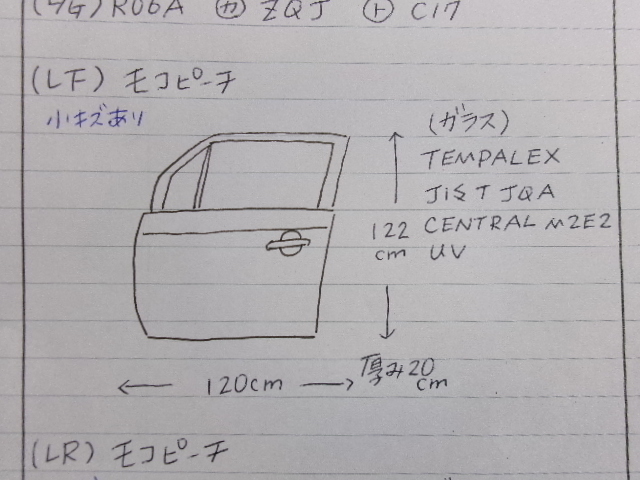 R06A ㋕ ZQJ ㋣ C17
(LF) モコピーチ
小キズあり
(ガラス)
TEMPALEX
JIS T JQA
CENTRAL M2E2
UV
122
cm
120cm
厚み20
cm
(LR) モコピーチ